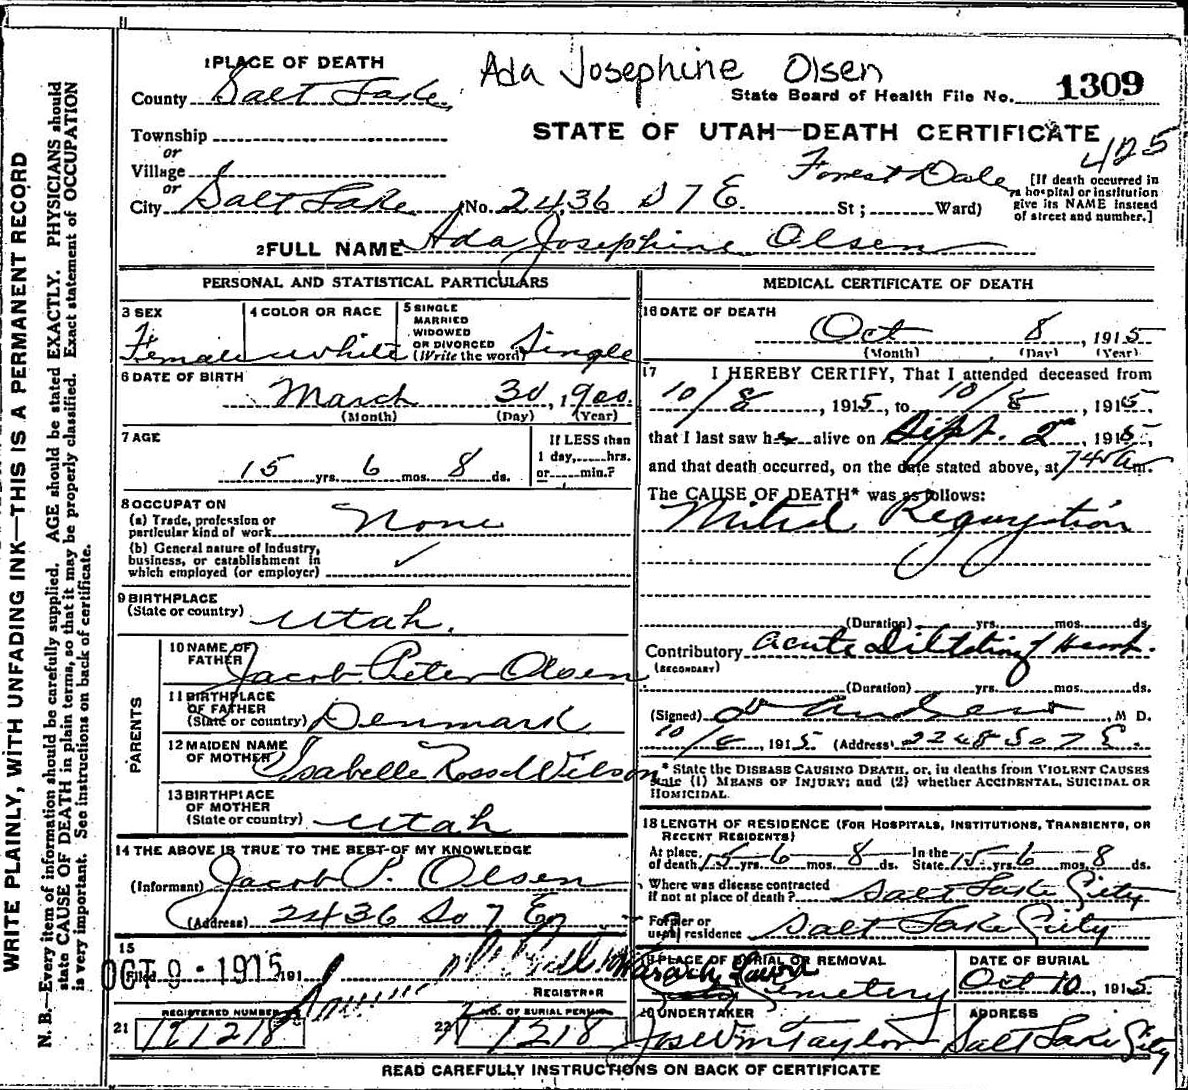 Ada Josephine Olsen
1 PLACE OF DEATH
County Salt Lake
State Board of Health File No. 1309
Township
or
Village
or
City Salt Lake (No. 2436 S 7 E. St; Ward)
STATE OF UTAH—DEATH CERTIFICATE
425
Forest Dale
[If death occurred in
a hospital or institution
give its NAME instead
of street and number.]
2 FULL NAME Ada Josephine Olsen
PERSONAL AND STATISTICAL PARTICULARS
3 SEX
Female
4 COLOR OR RACE
white
5 SINGLE
MARRIED
WIDOWED
OR DIVORCED
(Write the word) Single
6 DATE OF BIRTH
March 30, 1900
(Month) (Day) (Year)
7 AGE
15 yrs. 6 mos. 8 ds.
If LESS than
1 day,....hrs.
or....min.?
8 OCCUPATION
(a) Trade, profession or
particular kind of work None
(b) General nature of industry,
business, or establishment in
which employed (or employer)
9 BIRTHPLACE
(State or country) Utah.
PARENTS
10 NAME OF
FATHER Jacob Peter Olsen
11 BIRTHPLACE
OF FATHER
(State or country) Denmark
12 MAIDEN NAME
OF MOTHER Isabelle Rossel Wilson
13 BIRTHPLACE
OF MOTHER
(State or country) Utah
14 THE ABOVE IS TRUE TO THE BEST OF MY KNOWLEDGE
(Informant) Jacob P. Olsen
(Address) 2436 So 7 E
15
OCT 9 - 1915
Filed 191
REGISTRAR
REGISTERED NUMBER
21
NO. OF BURIAL PERMIT
22 1218
MEDICAL CERTIFICATE OF DEATH
16 DATE OF DEATH
Oct 8, 1915
(Month) (Day) (Year)
17 I HEREBY CERTIFY, That I attended deceased from
10/8, 1915, to 10/8, 1915,
that I last saw her alive on Sept. 2, 1915,
and that death occurred, on the date stated above, at 745 a m.
The CAUSE OF DEATH* was as follows:
Mitral Regurgitation
(Duration) yrs. mos. ds.
Contributory acute Dilitation of Heart.
(SECONDARY)
(Duration) yrs. mos. ds.
(Signed) D Andrew, M D.
10/8, 1915 (Address) 2248 So 7 E.
* State the DISEASE CAUSING DEATH, or, in deaths from VIOLENT CAUSES
state (1) MEANS OF INJURY; and (2) whether ACCIDENTAL, SUICIDAL OR
HOMICIDAL.
18 LENGTH OF RESIDENCE (FOR HOSPITALS, INSTITUTIONS, TRANSIENTS, OR
RECENT RESIDENTS)
At place
of death 15 yrs. 6 mos. 8 ds. In the
State 15 yrs. 6 mos. 8 ds.
Where was disease contracted
if not at place of death? Salt Lake City
Former or
usual residence Salt Lake City
19 PLACE OF BURIAL OR REMOVAL
Wasatch Lawn
Cemetery
DATE OF BURIAL
Oct 10, 1915
20 UNDERTAKER
Jos Wm Taylor
ADDRESS
Salt Lake City
READ CAREFULLY INSTRUCTIONS ON BACK OF CERTIFICATE
WRITE PLAINLY, WITH UNFADING INK—THIS IS A PERMANENT RECORD
N. B.—Every item of information should be carefully supplied. AGE should be stated EXACTLY. PHYSICIANS should
state CAUSE OF DEATH in plain terms, so that it may be properly classified. Exact statement of OCCUPATION
is very important. See instructions on back of certificate.